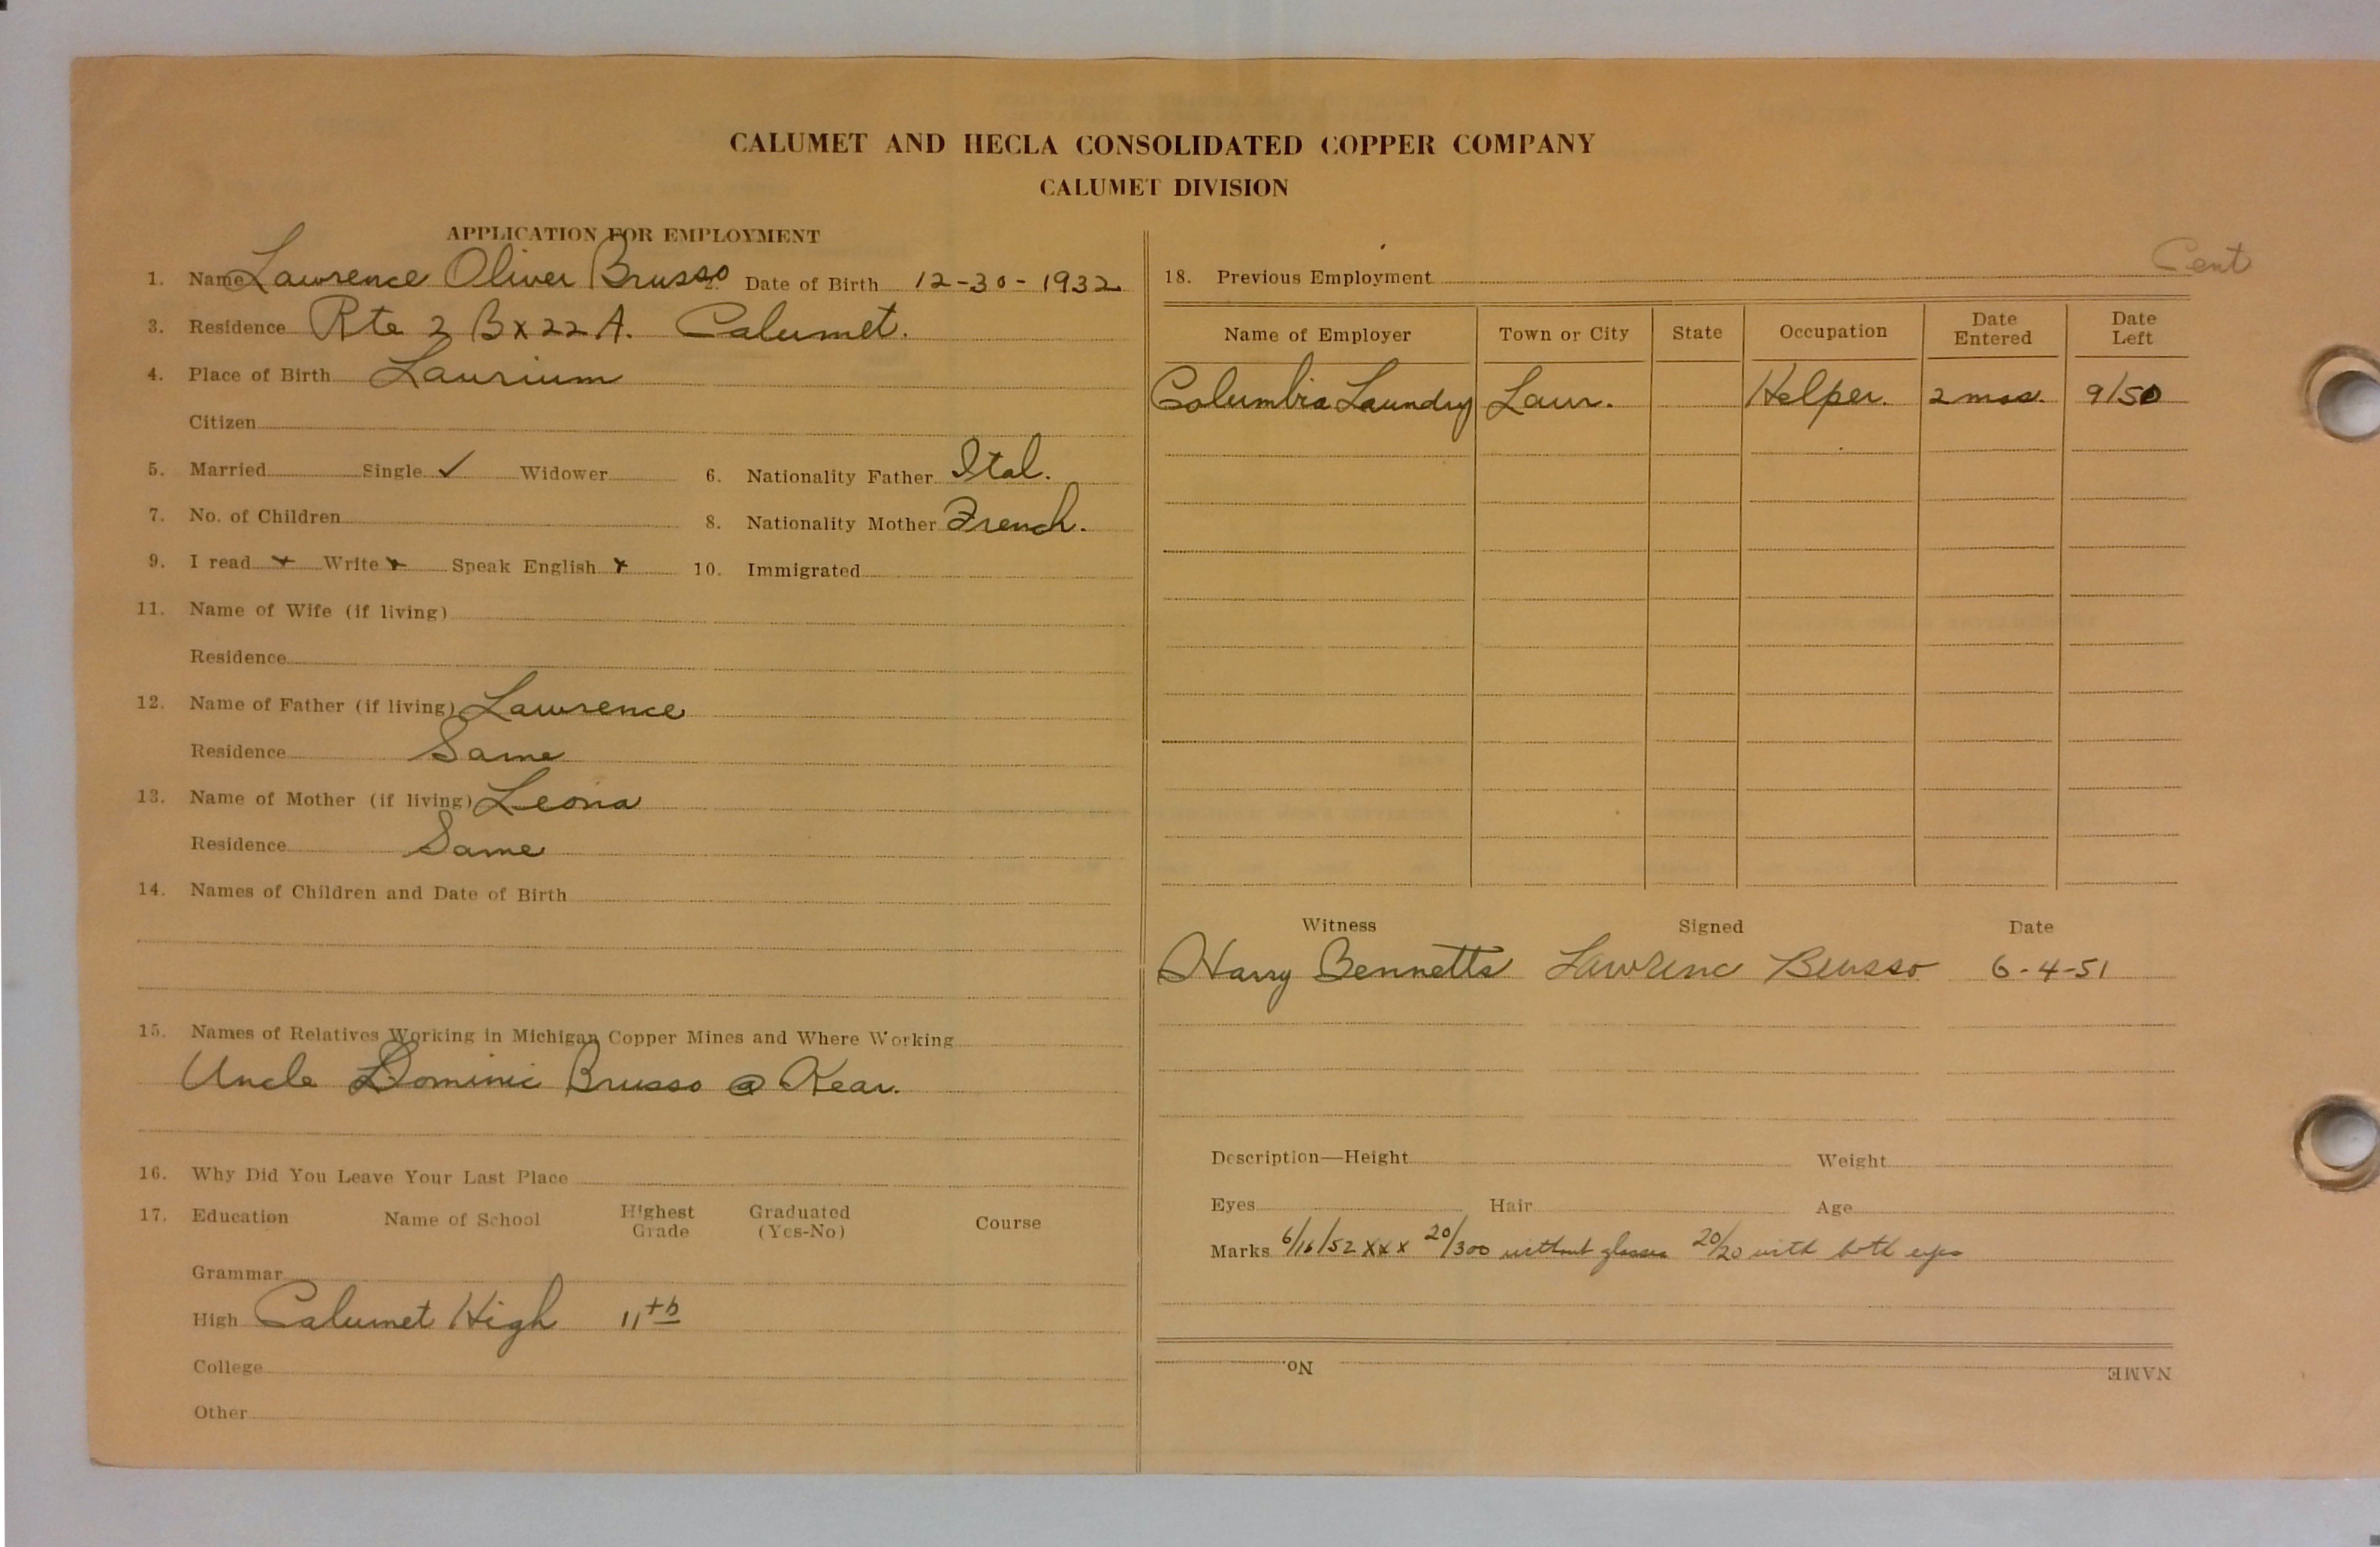 CALUMET AND HECLA CONSOLIDATED COPPER COMPANY
CALUMET DIVISION
APPLICATION FOR EMPLOYMENT
1. Name Lawrence Oliver Brusso 2. Date of Birth 12-30-1932
3. Residence Rte 2 Bx 22 A. Calumet.
4. Place of Birth Laurium
Citizen
5. Married Single ✓ Widower 6. Nationality Father Ital.
7. No. of Children 8. Nationality Mother French.
9. I read x Write x Speak English x 10. Immigrated
11. Name of Wife (if living)
Residence
12. Name of Father (if living) Lawrence
Residence Same
13. Name of Mother (if living) Leona
Residence Same
14. Names of Children and Date of Birth
15. Names of Relatives Working in Michigan Copper Mines and Where Working
Uncle Dominic Brusso @ Kear.
16. Why Did You Leave Your Last Place
17. Education Name of School Highest Grade Graduated (Yes-No) Course
Grammar
High Calumet High 11th
College
Other
Cent
18. Previous Employment
Name of Employer Town or City State Occupation Date Entered Date Left
Columbia Laundry Laur. Helper. 2 mos. 9/50
Witness Signed Date
Harry Bennetts Lawrenc Brusso 6-4-51
Description—Height Weight
Eyes Hair Age
Marks 6/16/52 xxx 20/300 without glasses 20/20 with both eyes
No. NAME